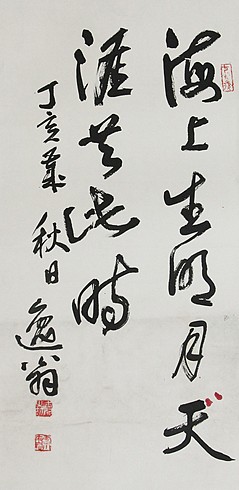 海上生明月天
涯共此時
丁亥年秋日
逸翁